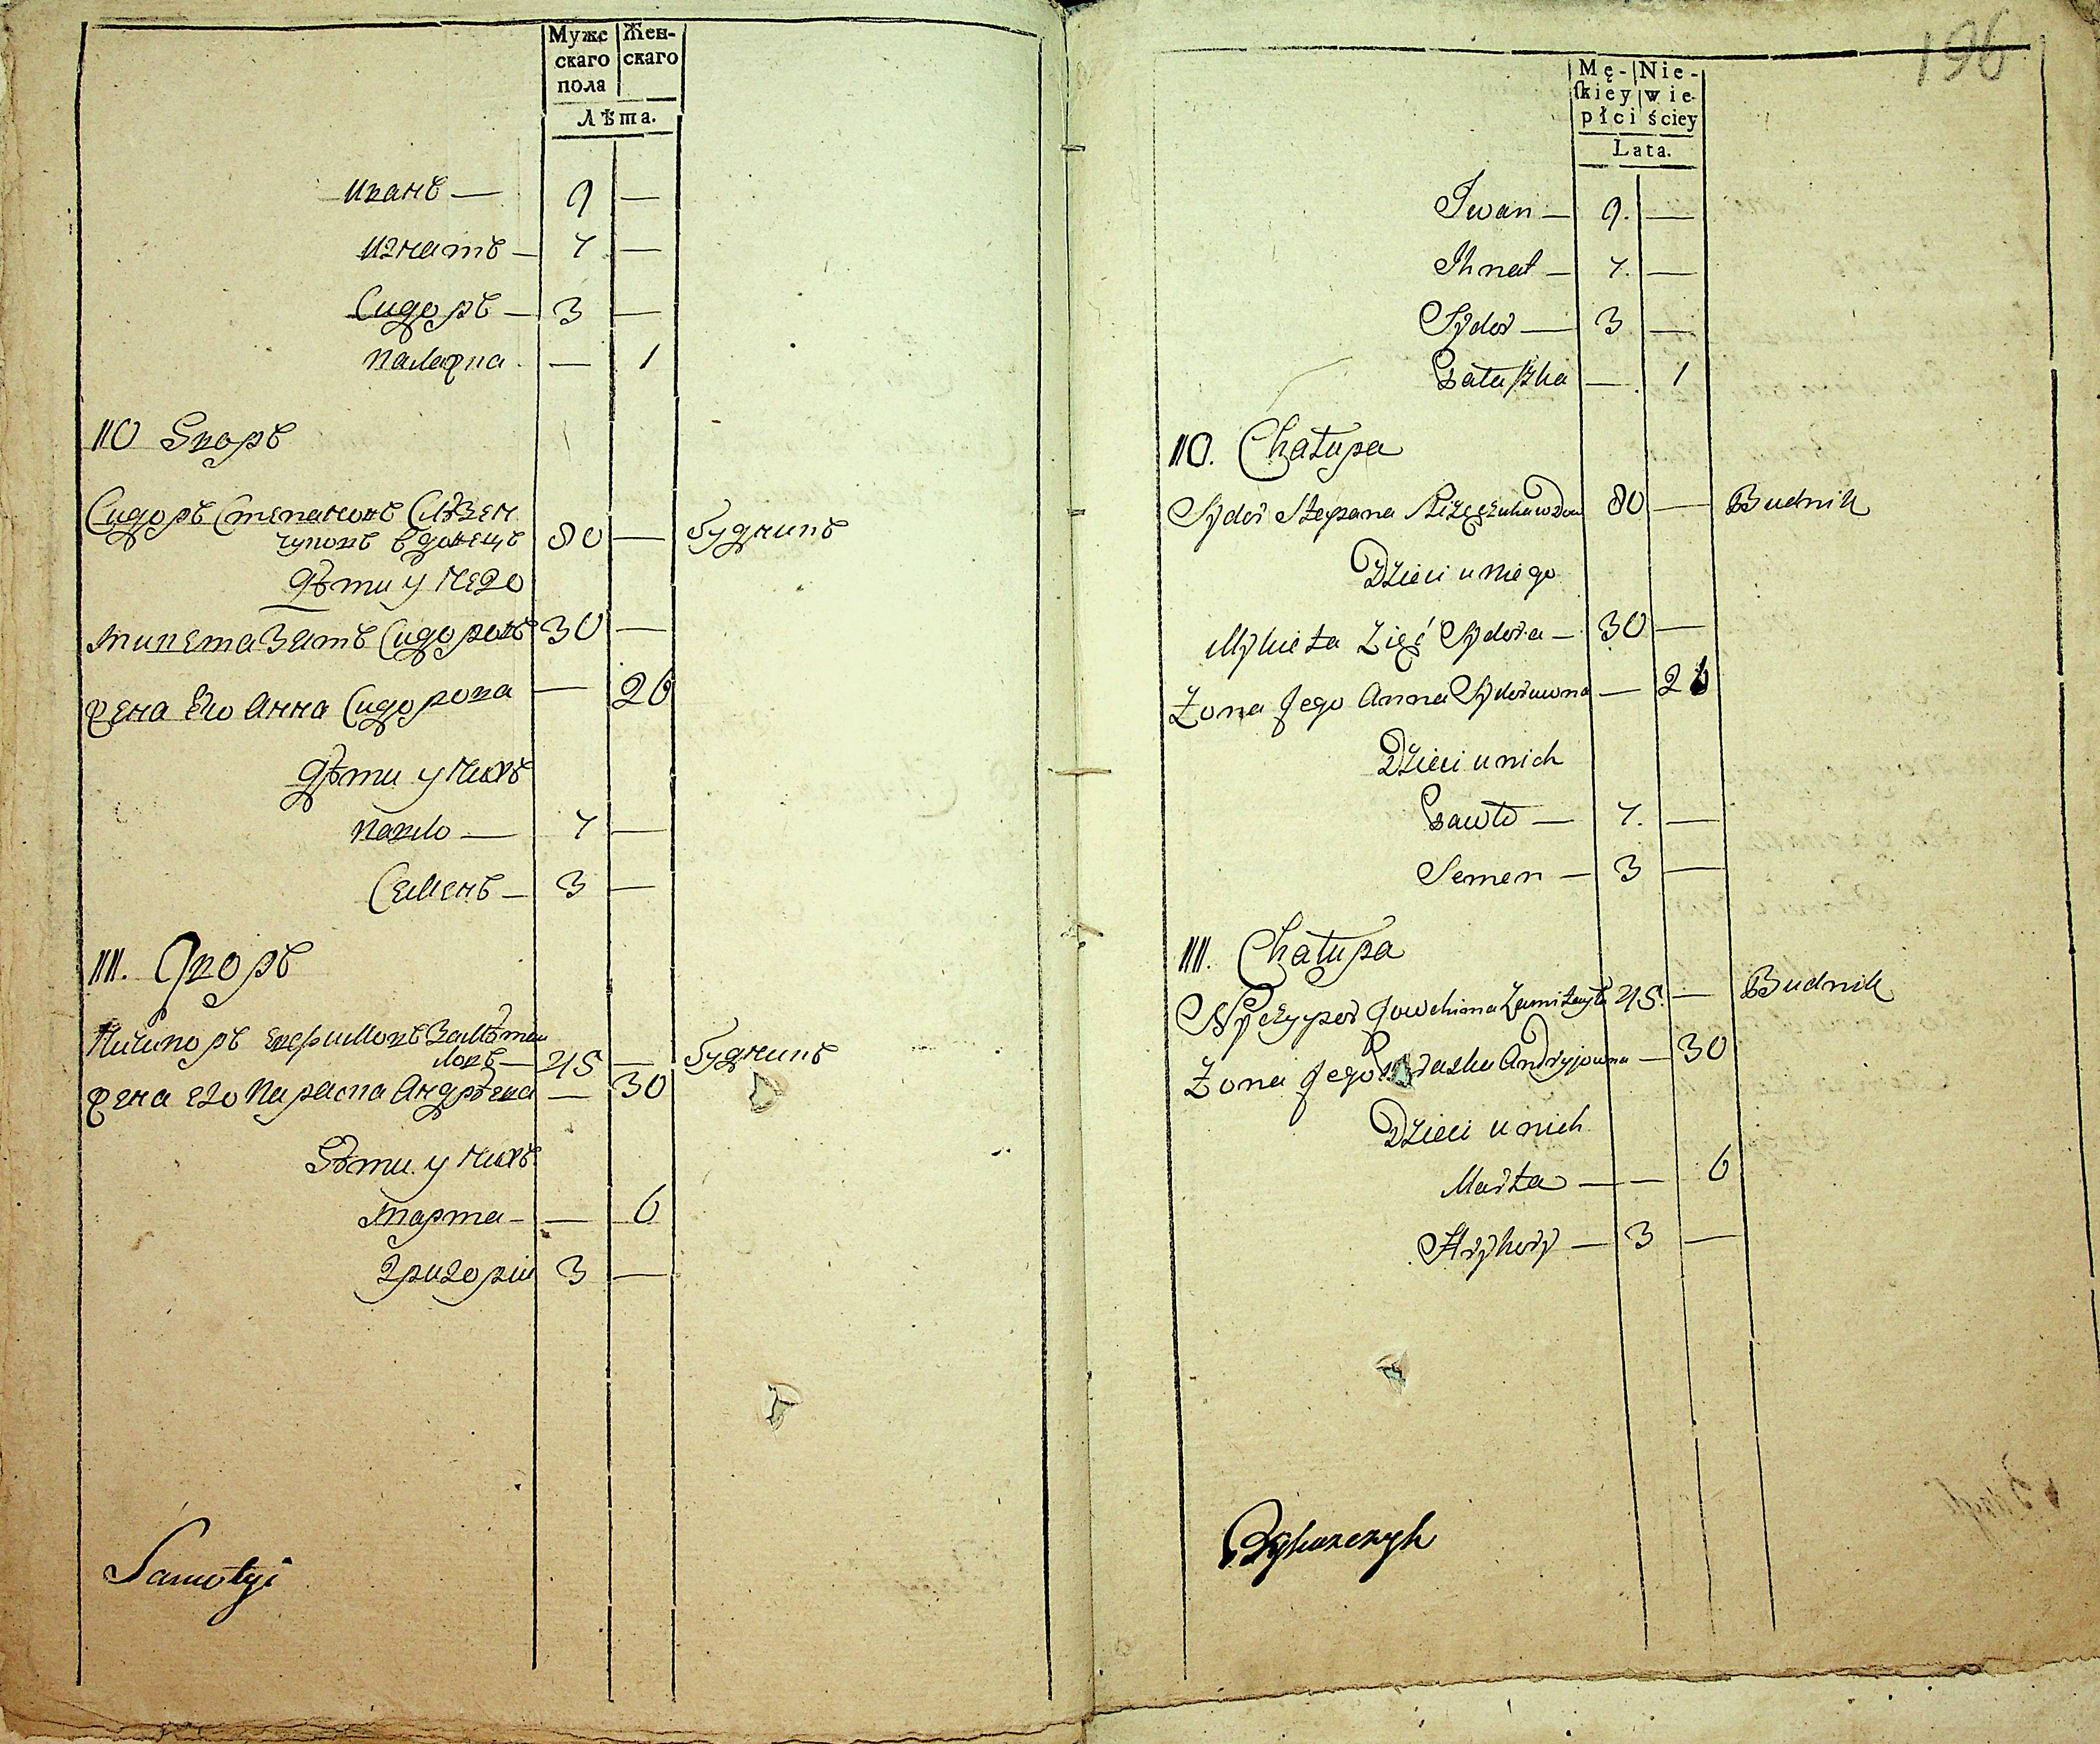 Муже
скаго
пола
Жен-
скаго
Лѣта.
Иванъ — 9 —
Игнатъ — 7 —
Сидоръ — 3 —
Палажка — 1
110 Дворъ
Сидоръ Степановъ
вдовецъ 80 — Будникъ
Дѣти у него
Микета Зять Сидоровъ 30 —
жена Его Анна Сидорова — 26
Дѣти у нихъ
Павло — 7 —
Семенъ — 3 —
111. Дворъ
Ничипоръ
45 — Будникъ
жена его Параска Андрѣева — 30
Дѣти у нихъ
Марта — — 6
Григорій 3 —
196
Mę-
skiey
płci
Nie-
wie-
ściey
Lata.
Iwan — 9. —
Ihnat — 7. —
Sydor — 3 —
Pałaszka — 1
110. Chałupa
Sydor Stepana 80 — Budnik
Dzieci u niego
Mykieta Zięć Sydora — 30 —
Żona Jego Anna Sydorowna — 26
Dzieci u nich
Pawło — 7. —
Semen — 3 —
111. Chałupa
Nyczypor Jowchima 45. — Budnik
Żona Jego Paraska Andryjowna — 30
Dzieci u nich
Marta — — 6
Hryhory — 3 —